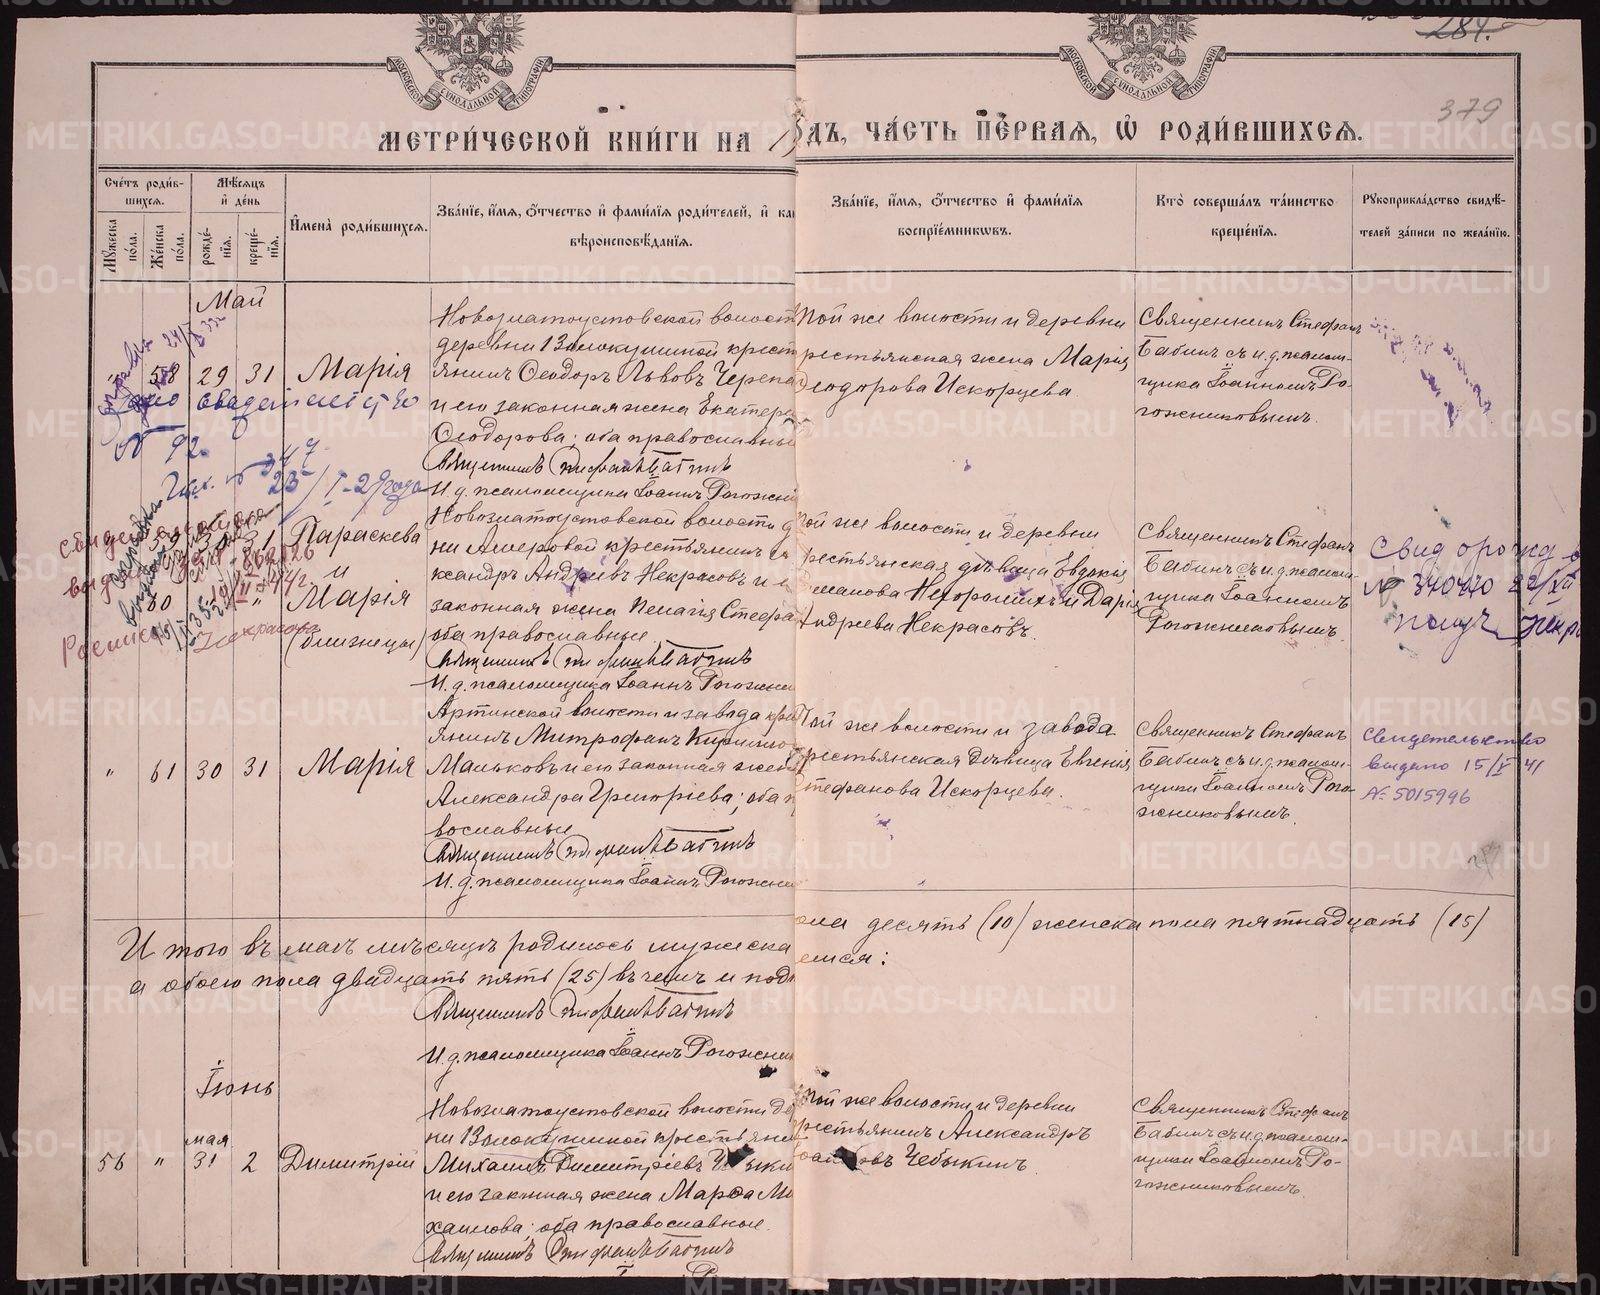 284.
379
МОСКОВСКОЙ СѴНОДАЛЬНОЙ ТИПОГРАФІИ
МОСКОВСКОЙ СѴНОДАЛЬНОЙ ТИПОГРАФІИ
МЕТРИ́ЧЕСКОЙ КНИ́ГИ НА 19
ДЪ, ЧА́СТЬ ПЕ́РВАЯ, Ѡ҆ РОДИ́ВШИХСЯ.
Сче́тъ роди́в-
шихся.
Мѣ́сяцъ
и҆ де́нь
Мꙋ́жеска
по́ла.
Же́нска
по́ла.
рожде́-
нїя.
креще́-
нїя.
И҆мена̀ роди́вшихся.
Зва́нїе, и҆́мя, ѻ҆́тчество и҆ фами́лїя роди́телей, и҆ как
вѣроисповѣ́данїя.
Зва́нїе, и҆́мя, ѻ҆́тчество и҆ фами́лїя
воспрїе́мникωвъ.
Кто̀ соверша́лъ та́инство
креще́нїя.
Рꙋкоприкла́дство свидѣ́-
телей за́писи по жела́нїю.
Май
58 29 31 Марія
Новозлатоустовской волост
деревни Волокушиной крест
янинъ Ѳеодоръ Львовъ Черепа
и его законная жена Екатери
Ѳеодорова; оба православные
Священникъ Стефанъ Бабинъ
И. д. псаломщика Іоаннъ Рогожни
той же волости и деревни
рестьянская жена Марія
Ѳеодорова Искорцева
Священникъ Стефанъ
Бабинъ съ и. д. псалом-
щика Іоанномъ Ро-
гожниковымъ.
свидетельство
№ 92.
23/I-29 года
59 30 31 Параскева
и
60 " " Марія
(близнецы)
Новозлатоустовской волости д
ни Амеровой крестьянинъ Ал
ксандръ Андреевъ Некрасовъ и е
законная жена Пелагія Стефа
оба православные.
Священникъ Стефанъ Бабинъ
И. д. псаломщика Іоаннъ Рогожни
той же волости и деревни
рестьянская дѣвица Евдокія
Некрасовъ.
Священникъ Стефанъ
Бабинъ съ и. д. псалом-
щика Іоанномъ
Рогожниковымъ.
Некрасовъ
" 61 30 31 Марія
Артинской волости и завода кре
янинъ Митрофанъ Кирилло
Маньковъ и его законная жен
Александра Григоріева; оба п
вославные
Священникъ Стефанъ Бабинъ
И. д. псаломщика Іоаннъ Рогожни
той же волости и завода
рестьянская дѣвица Евгенія
тефанова Искорцева.
Священникъ Стефанъ
Бабинъ съ и. д. псалом-
щика Іоанномъ Рого-
жниковымъ.
Свидетельство
выдано 15/V 41
№ 5015996
Итого въ маѣ мѣсяцѣ родилось мужеска
ола десять (10) женска пола пятнадцать (15)
а обоего пола двадцать пять (25) въ чемъ и подп
емся:
Священникъ Стефанъ Бабинъ
И. д. псаломщика Іоаннъ Рогожни
Іюнь
мая
56 " 31 2 Димитрій
Новозлатоустовской волости де
ни Волокушиной крестьяни
Михаилъ Димитріевъ Чебыки
и его законная жена Марѳа Ми
хаилова; оба православные.
Священникъ Стефанъ Бабинъ
той же волости и деревни
рестьянинъ Александръ
Чебыкинъ.
Священникъ Стефанъ
Бабинъ съ и. д. псалом-
щика Іоанномъ Ро-
гожниковымъ.
METRIKI.GASO-URAL.RU